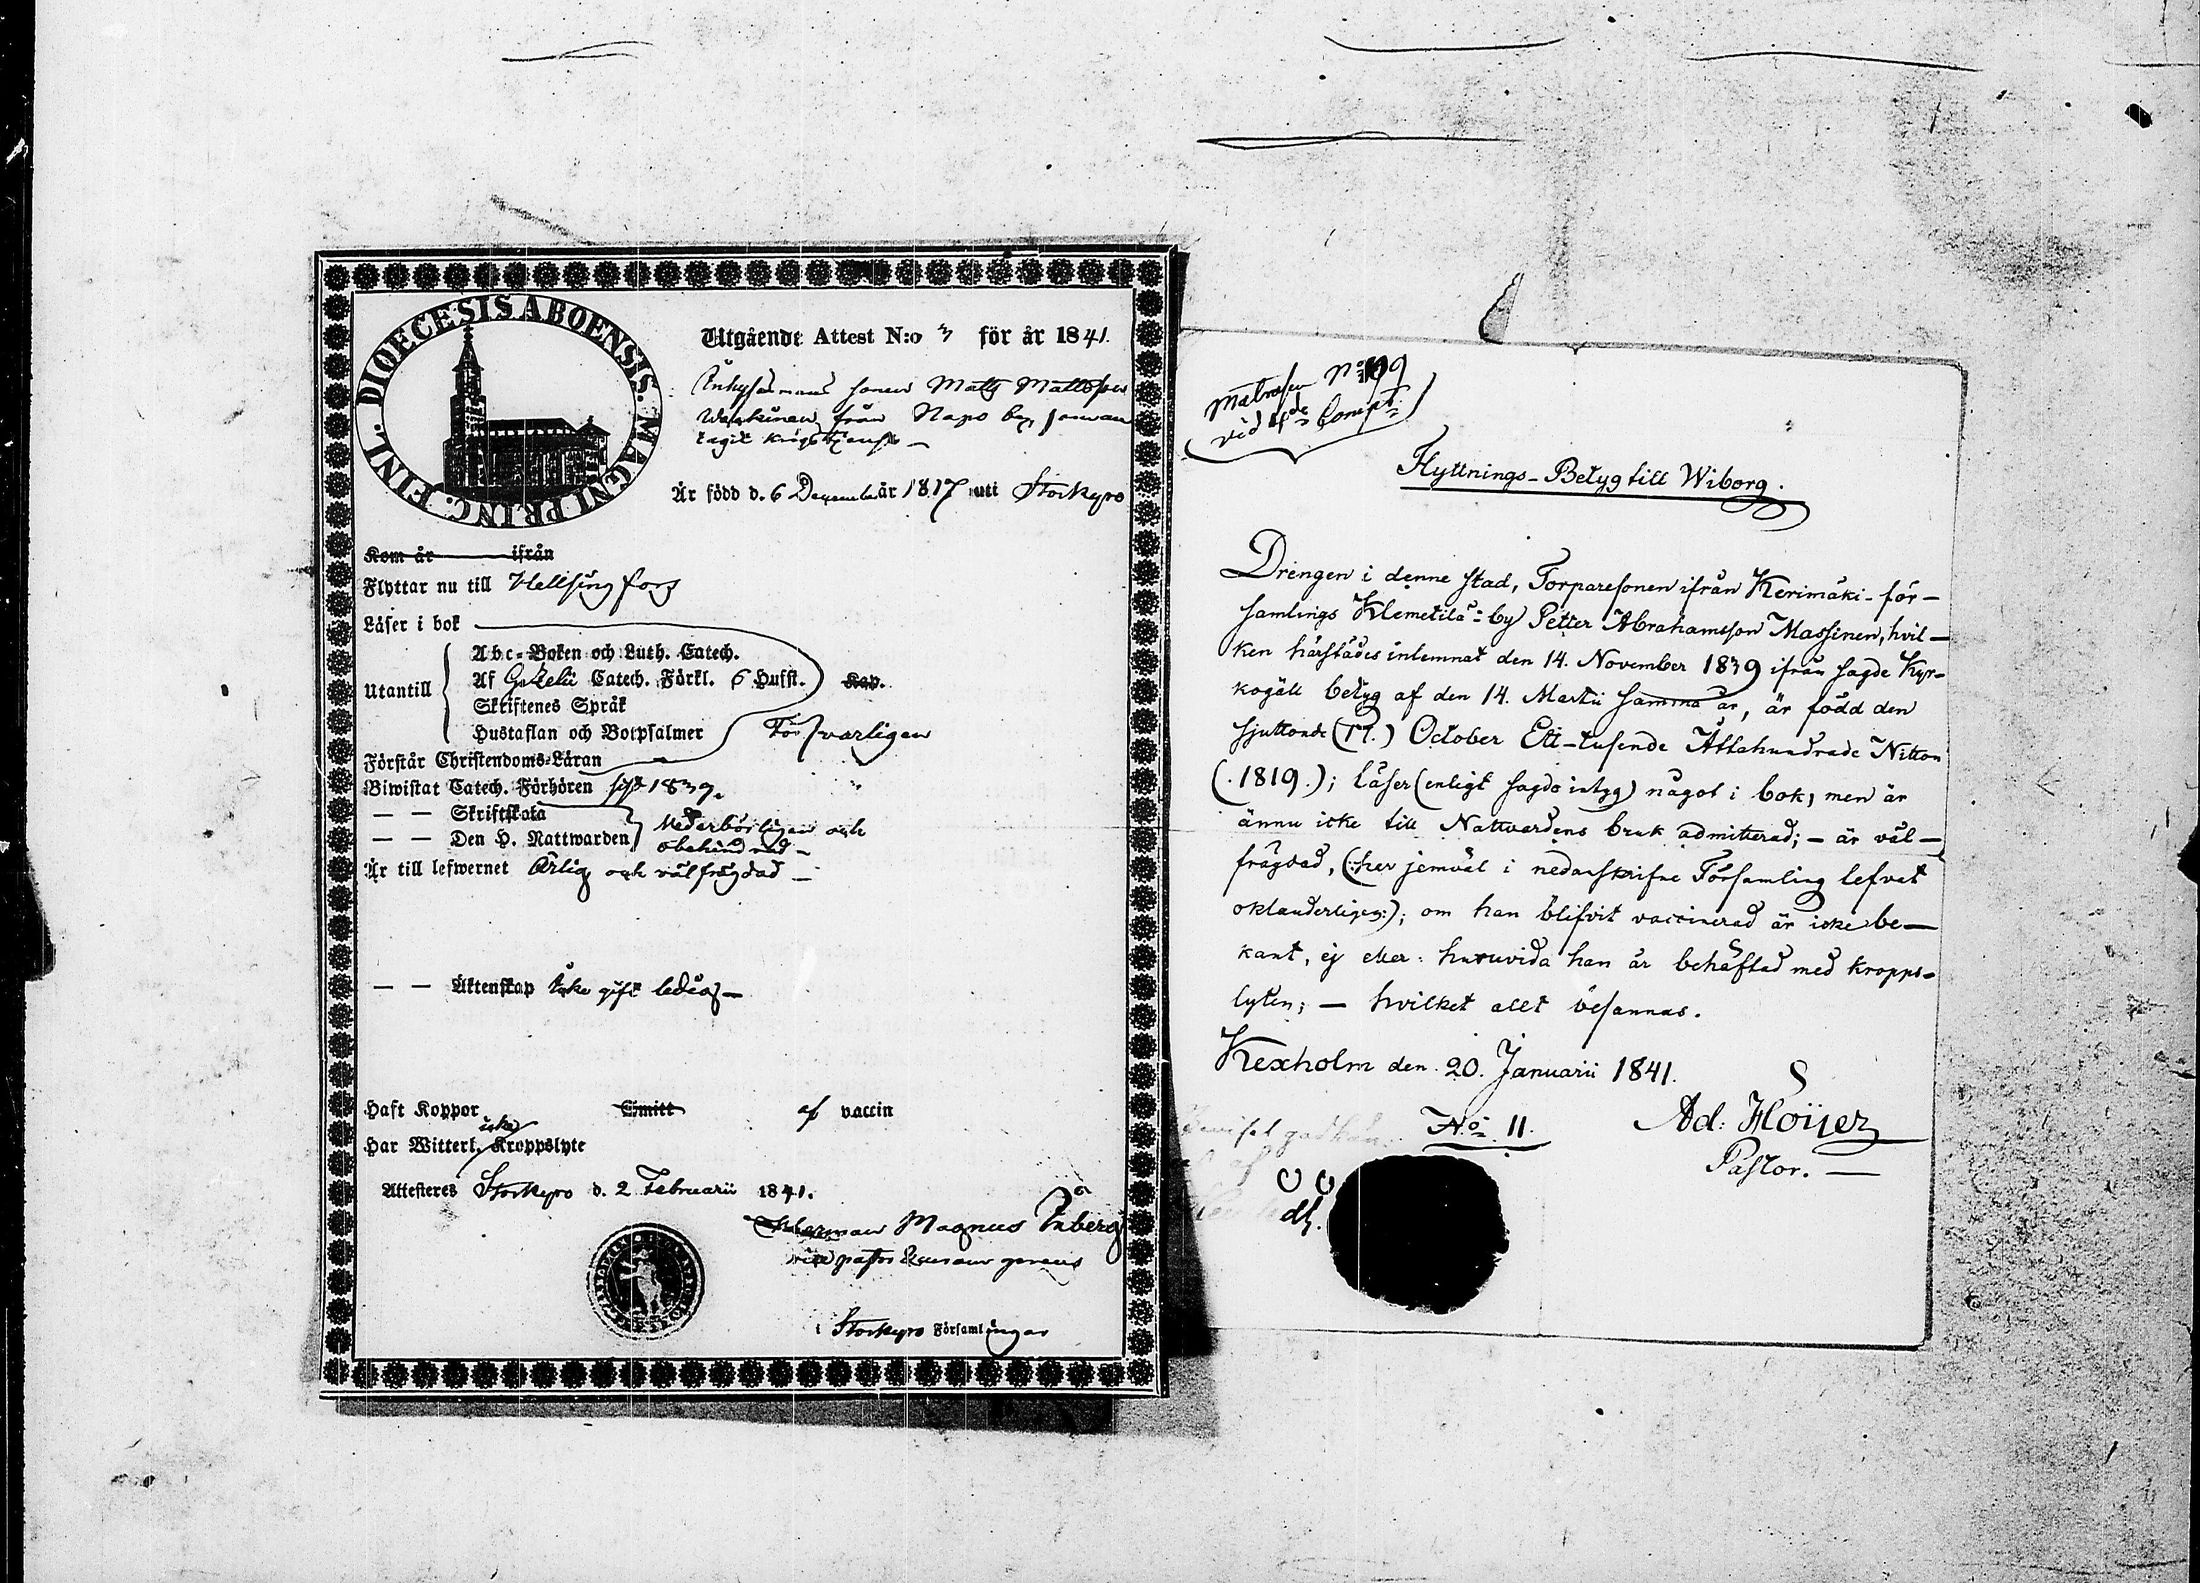 DIOECESIS ABOENSIS. MAGNI PRINC. FINL.
Utgående Attest N:o 3 för år 1841.
sonen Matts Mattsson
från Napo by, som an
tagit krigstjenst —
Är född d. 6 Decemb år 1817 uti Storkyro
Kom år ifrån
Flyttar nu till Hellsingfors
Läser i bok
Utantill
Abc-Boken och Luth. Catech.
Af Gezelii Catech. Förkl. 6 Hufst. Kap.
Skriftenes Språk
Hustaflan och Botpsalmer Försvarligen
Förstår Christendoms-Läran
Biwistat Catech. Förhören sist 1839.
— — Skriftskola
— — Den H. Nattwarden Vederbörligen och
obehindrad —
Är till lefwernet Ärlig och välfrägdad —
— — Äktenskap Icke gift ledig —
Haft Koppor Smitt af vaccin
Har Witterl. icke Kroppslyte
Attesteras Storkyro d. 2 Februarii 1841.
Herman Magnus Åberg
vice pastor
i Storkyro Församlingar
Matrosen No 109
vid 4de Compt.
Flyttnings-Betyg till Wiborg.
Drengen i denne stad, Torparesonen ifrån Kerimäki-för-
samlings Klemetilä-by Petter Abrahamsson Massinen, hvil-
ken härstädes inlemnat den 14. November 1839 ifrån sagde Kyr-
kogäll betyg af den 14. Martii samma år, är född den
sjuttonde (17.) October Ett-tusende Åttahundrade Nitton
(.1819.); läser (enligt sagde intyg) något i bok, men är
ännu icke till Nattvardens bruk admitterad; — är väl-
frägdad, (:her jemväl i nedanskrifne Församling lefvat
oklanderligen:); om han blifvit vaccinerad är icke be-
kant, ej eller: huruvida han är behäftad med kropps-
lyten; — hvilket allt besannas.
Kexholm den 20. Januarii 1841.
No 11.
Ad: Höijer
Pastor. —